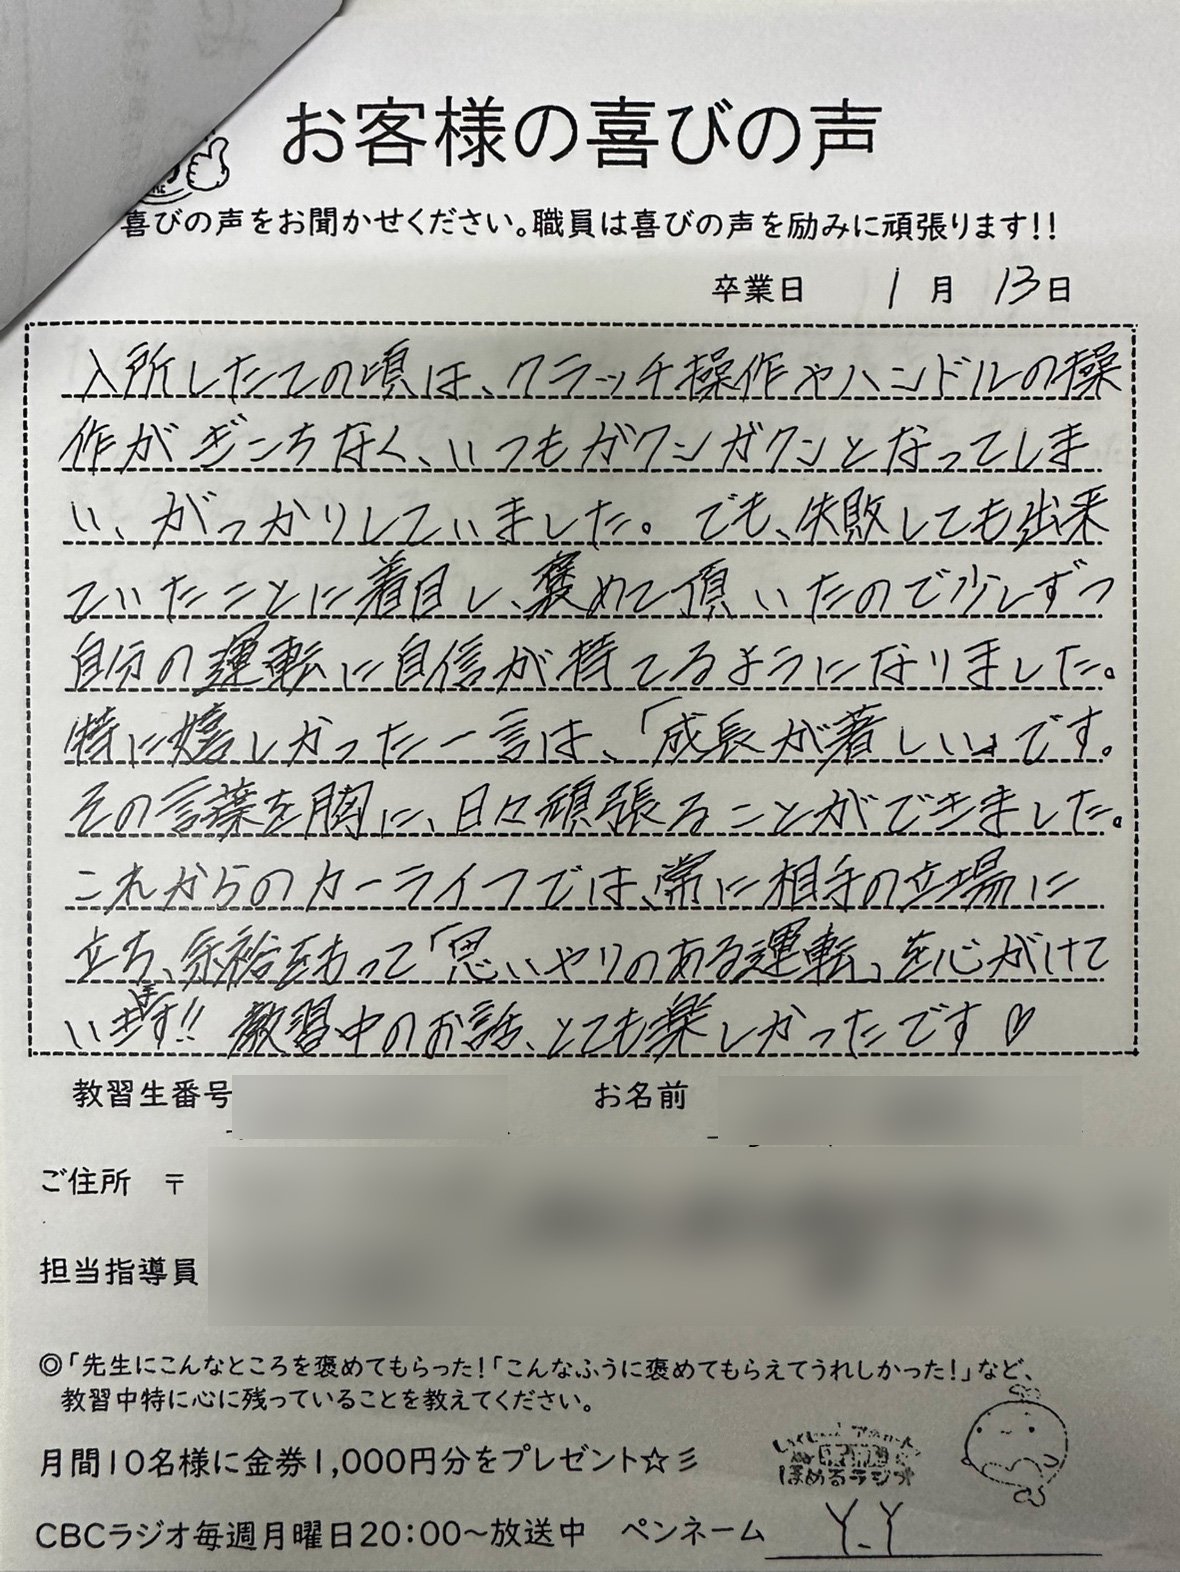 お客様の喜びの声
喜びの声をお聞かせください。職員は喜びの声を励みに頑張ります!!
卒業日 1月 13日
入所したての頃は、クラッチ操作やハンドルの操
作がぎこちなく、いつもガクンガクンとなってしま
い、がっかりしていました。でも、失敗しても出来
ていたことに着目し、褒めて頂いたので少しずつ
自分の運転に自信が持てるようになりました。
特に嬉しかった一言は、「成長が著しい」です。
その言葉を胸に、日々頑張ることができました。
これからのカーライフでは、常に相手の立場に
立ち、余裕をもって「思いやりのある運転」を心がけて
います!! 教習中のお話、とても楽しかったです♡
教習生番号 お名前
ご住所 〒
担当指導員
◎「先生にこんなところを褒めてもらった!「こんなふうに褒めてもらえてうれしかった!」など、
教習中特に心に残っていることを教えてください。
月間10名様に金券1,000円分をプレゼント☆彡
ほめるラジオ
CBCラジオ毎週月曜日20:00~放送中 ペンネーム Y.Y